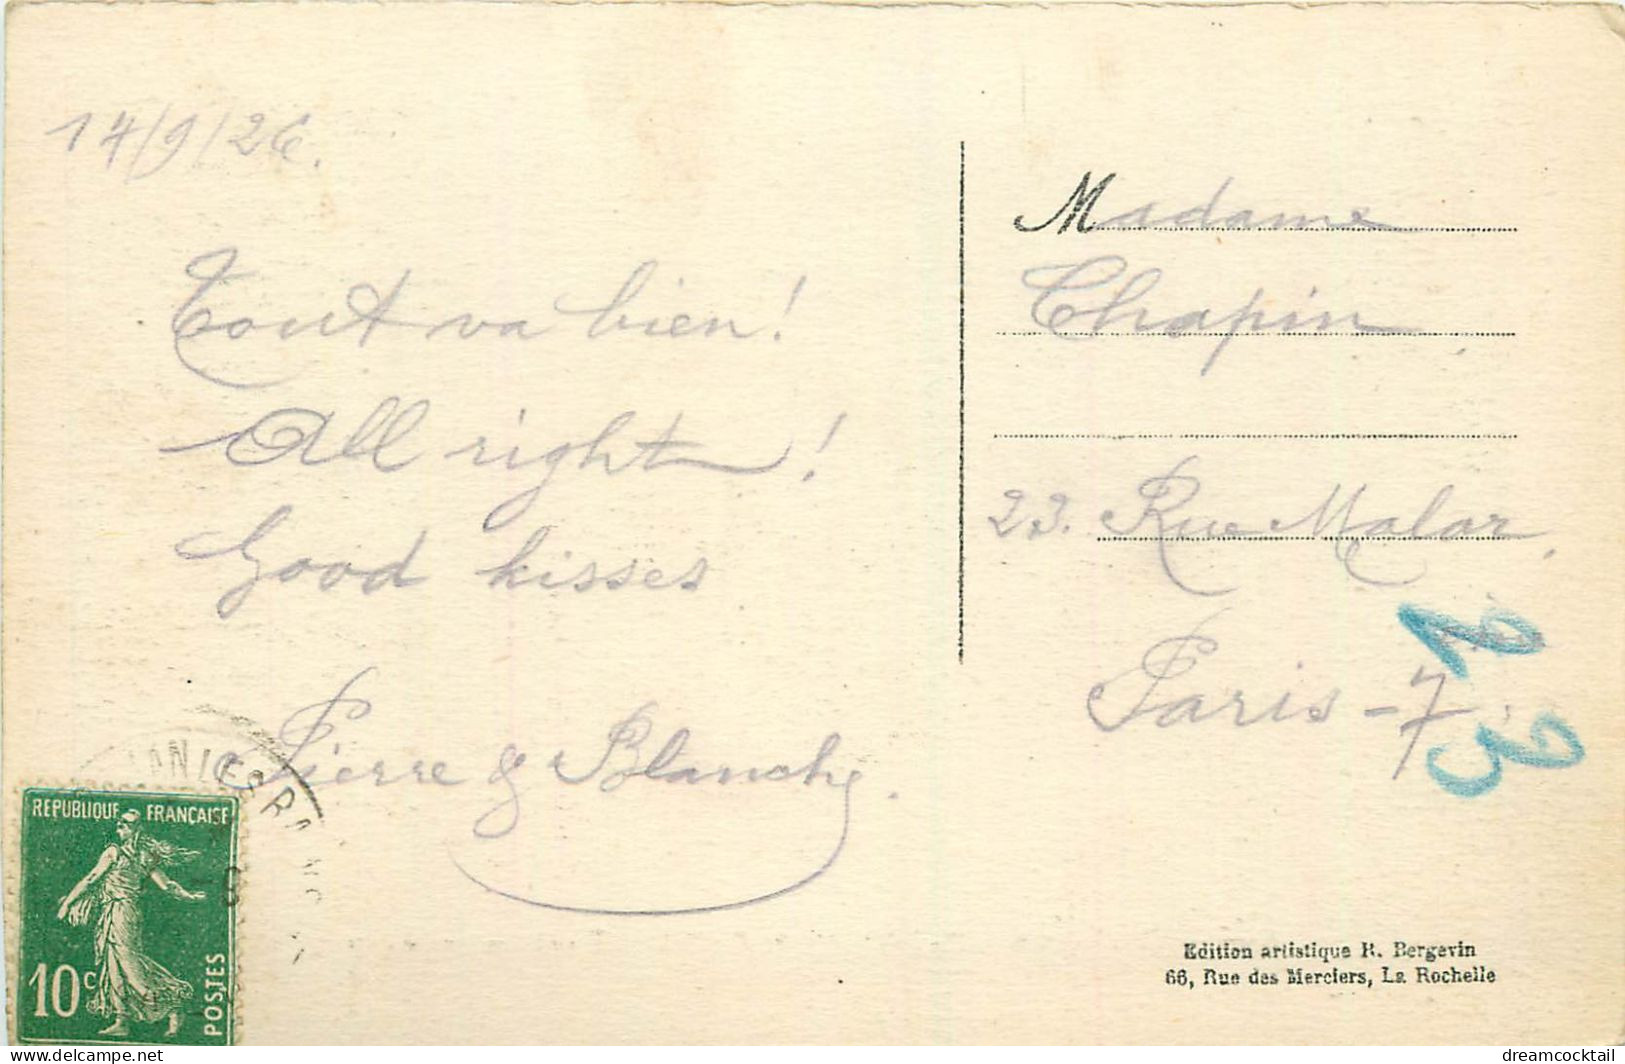 17/9/26.
Tout va bien!
All right!
Good kisses
Pierre & Blanche.
Madame
Chapin
23. Rue Malar,
Paris-7
23
REPUBLIQUE FRANÇAISE
10c
POSTES
Edition artistique R. Bergevin
66, Rue des Merciers, La Rochelle
dreamcocktail